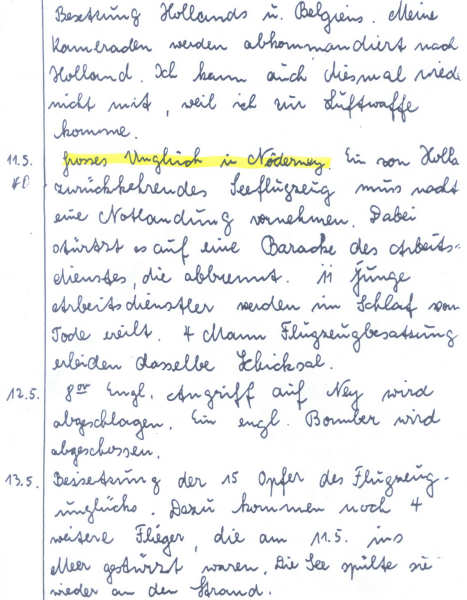 Besetzung Hollands u. Belgiens. Meine
Kameraden werden abkommandiert nach
Holland. Ich kann auch diesmal wied
nicht mit, weil ich zur Luftwaffe
komme.
11.5. Grosses Unglück in Nöderney. Ein von Holla
40 zurückkehrendes Seeflugzeug muss nacht
eine Notlandung vornehmen. Dabei
stürzt es auf eine Baracke des Arbeits-
dienstes, die abbrennt. 11 junge
Arbeitsdienstler werden im Schlaf vom
Tode ereilt. 4 Mann Flugzeugbesatzung
erleiden dasselbe Schicksal.
12.5. 8⁰⁰ Engl. Angriff auf Ney wird
abgeschlagen. Ein engl. Bomber wird
abgeschossen.
13.5. Beisetzung der 15 Opfer des Flugzeug-
unglücks. Dazu kommen noch 4
weitere Flieger, die am 11.5. ins
Meer gestürzt waren. Die See spülte sie
wieder an den Strand.